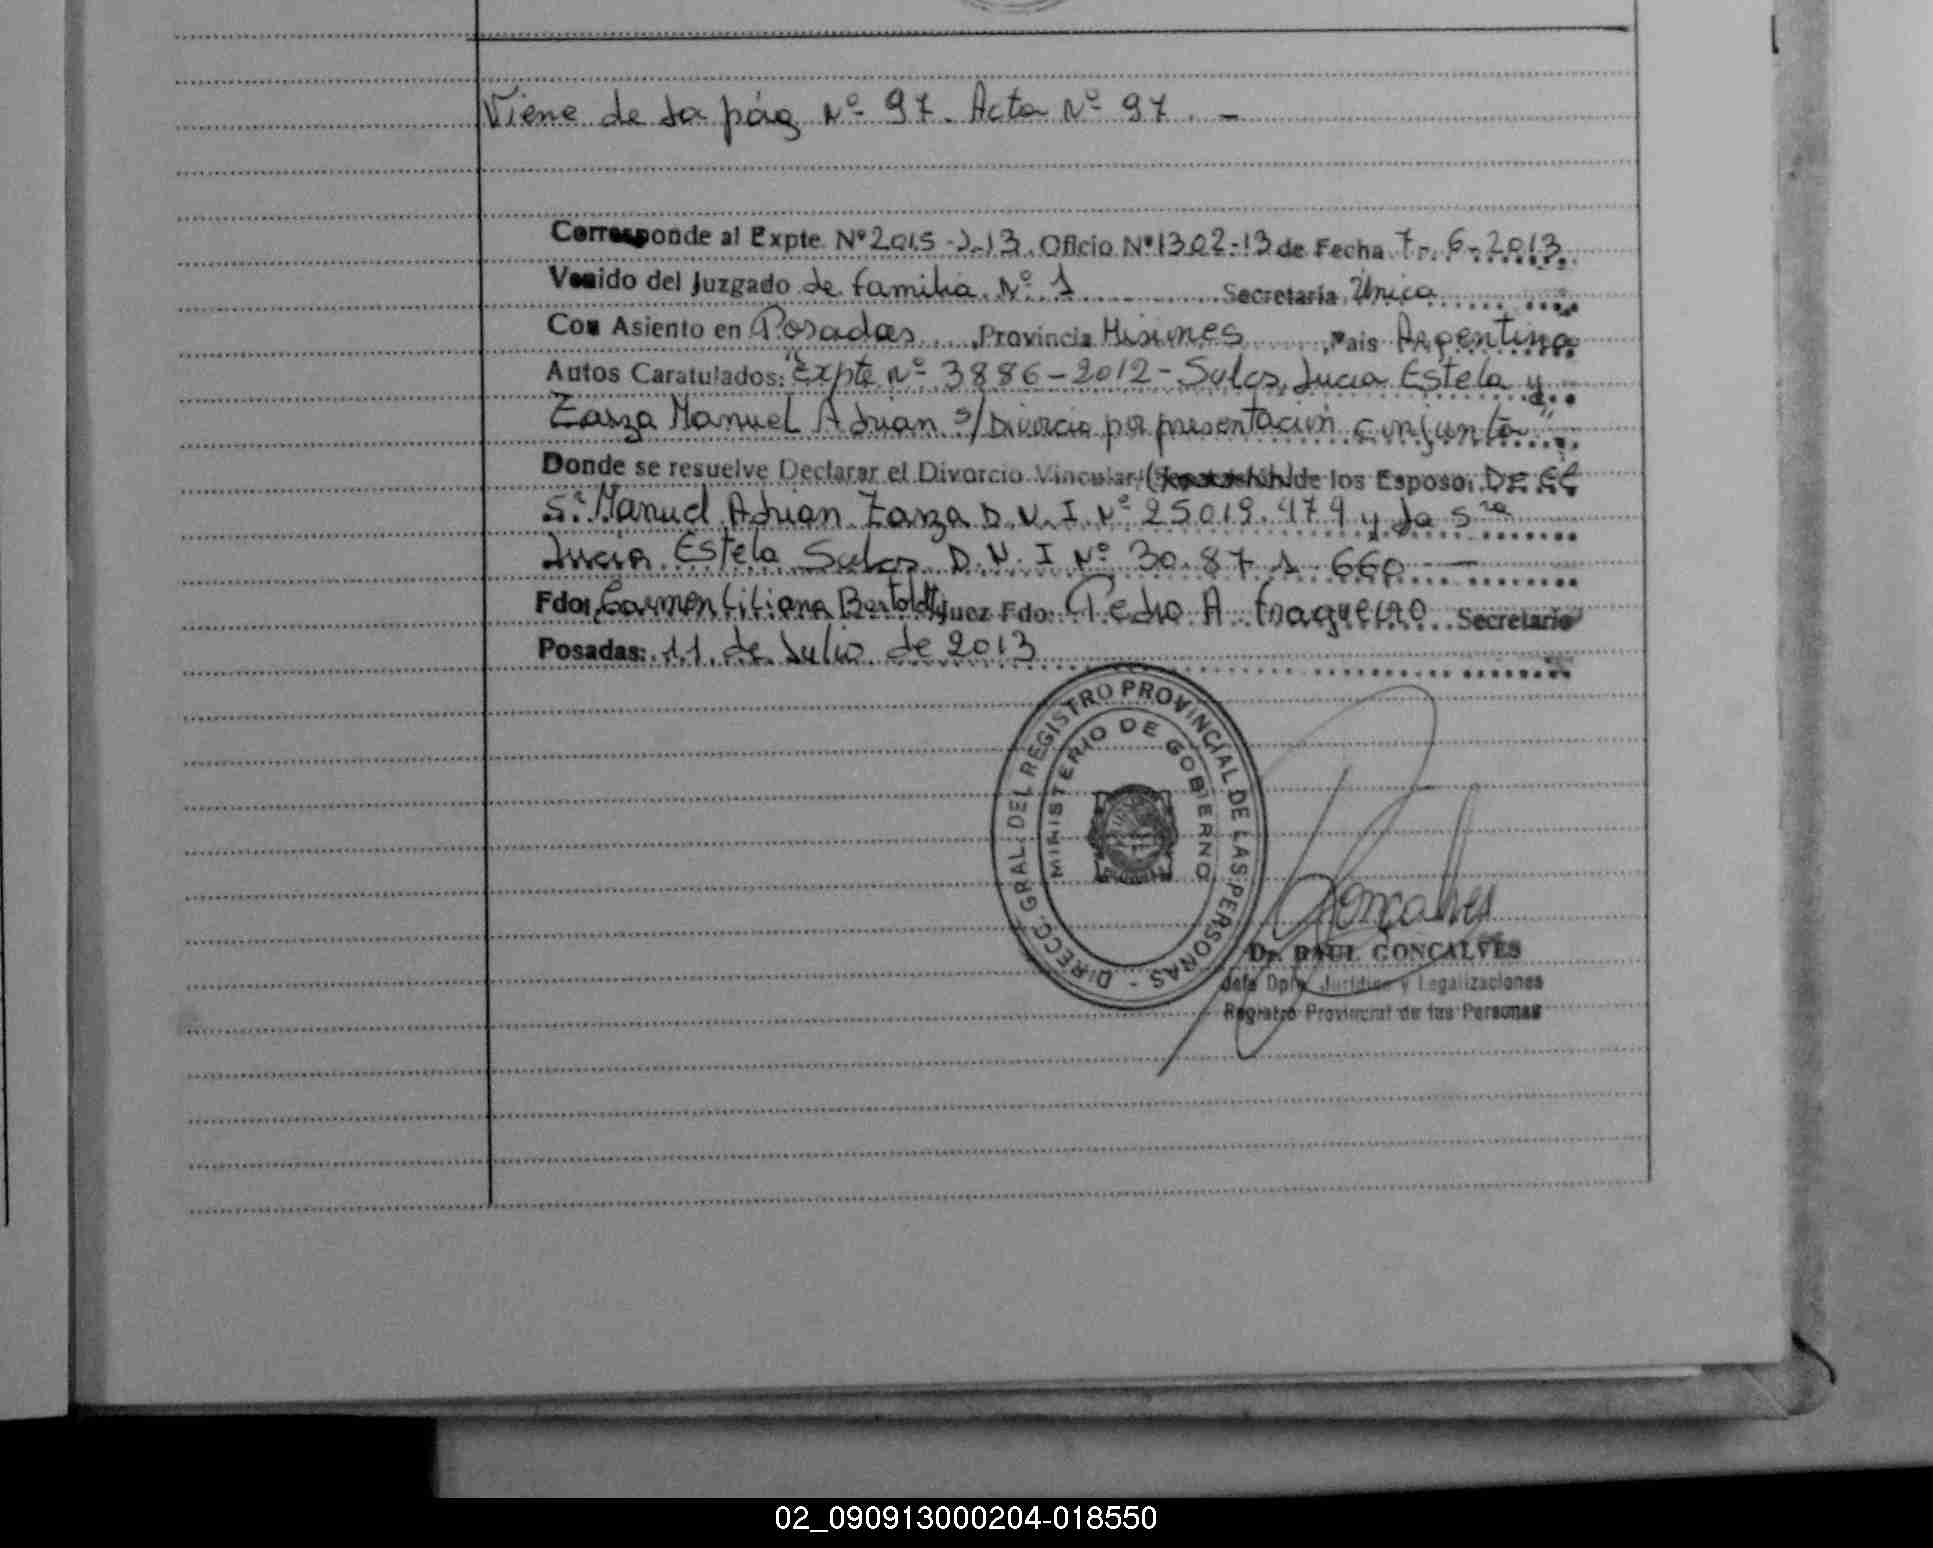 Viene de la pág Nº 97. Acta Nº 97. -
Corresponde al Expte. Nº 2015-J-13. Oficio Nº 1302-13 de Fecha 7-6-2013
Venido del Juzgado de familia Nº 1 Secretaria Única
Con Asiento en Posadas, Provincia Misiones, Pais Argentina
Autos Caratulados: "Expte Nº 3886-2012- Sulcs, Lucia Estela y
Zarza Manuel Adrian s/Divorcio por presentación conjunta"
Donde se resuelve Declarar el Divorcio Vincular de los Esposos
Sr. Manuel Adrian Zarza D.N.I. Nº 25.019.479 y la Sra
Lucia Estela Sulcs D.N.I Nº 30.871.660
Fdo: Carmen Liliana Bertoldi Juez Fdo: Pedro A. Fragueiro Secretario
Posadas: 11 de Julio de 2013
DIRECC. GRAL. DEL REGISTRO PROVINCIAL DE LAS PERSONAS -
MINISTERIO DE GOBIERNO
Goncalves
Dr. RAUL GONCALVES
Jefe Dpto. Jurídico y Legalizaciones
Registro Provincial de las Personas
02_090913000204-018550